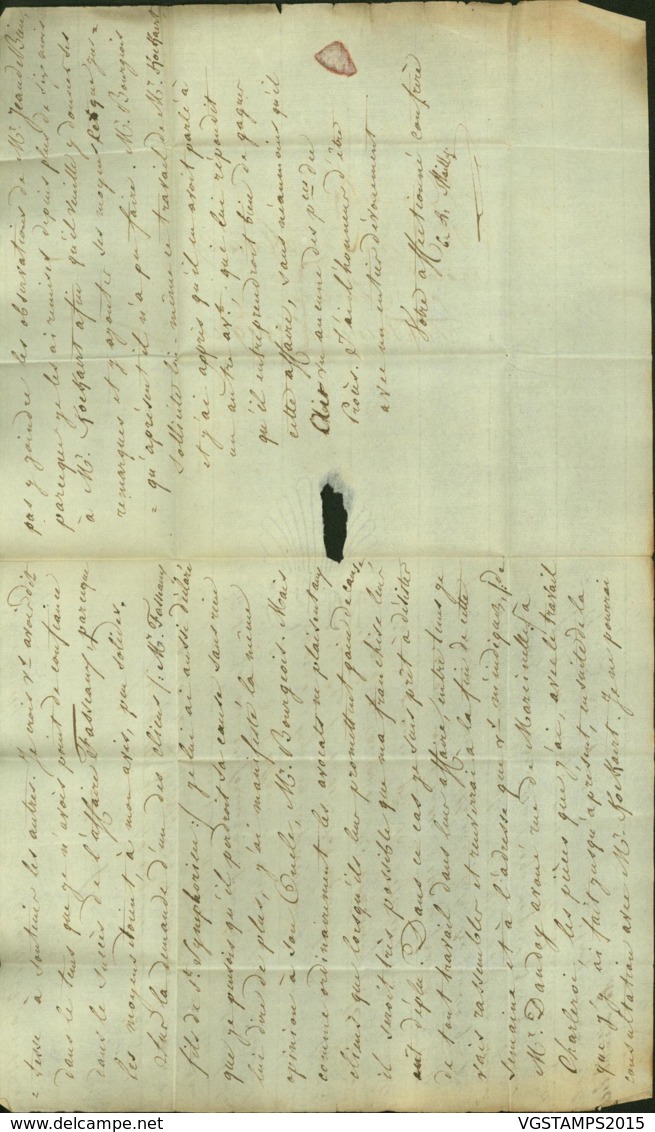 = tesse à soutenir les autres. Je crois vs avoir dit
dans le tems que je n'avois point de confiance
dans le succès de l'affaire Fasseaux, parceque
les moyens étoient, à mon avis, peu solides.
Sur la demande d'un des cliens /: Mr. Fasseaux
fils de St. Symphorien :/ je lui ai aussi déclaré
que je pensois qu'il perdroit sa cause sans rien
lui dire de plus, j'ai manifesté la même
opinion à son Oncle, Mr. Bourgeois. Mais
comme ordinairement les avocats ne plaisent aux
cliens que lorsqu'ils leur promettent gain de cause
il seroit très possible que ma franchise leur
eut déplu. Dans ce cas je suis prêt à désister
de tout travail dans leur affaire, entre tems je
vais rassembler et remettrai à la fin de cette
semaine et à l'adresse que vs. m'indiquez, de
Mr. Dandoy avoué rue de Marcinelle à
Charleroi, les pièces que j'ai, avec le travail
que j'y ai fait jusqu'àprésent, ensuite de la
consultation avec Mr. Kockaert. Je ne pourrai
pas y joindre les observations de Mr. Jean de Bain,
parceque je les ai remises depuis plus de six mois
à Mr. Kockaert afin qu'il veuille y donner ses
remarques et y ajouter ses moyens, ce que jus=
= qu'àprésent il n'a pu faire. Mr. Bourgeois
sollicite lui-même ce travail de Mr. Kockaert
et j'ai appris qu'il en avoit parlé à
un autre avt. qui lui répondit
qu'il entreprendroit bien de gagner
cette affaire, sans néanmoins qu'il
ait vu aucune des pces du
Procès. J'ai l'honneur d'être
avec un entier dévouement
Votre affectionné confrère